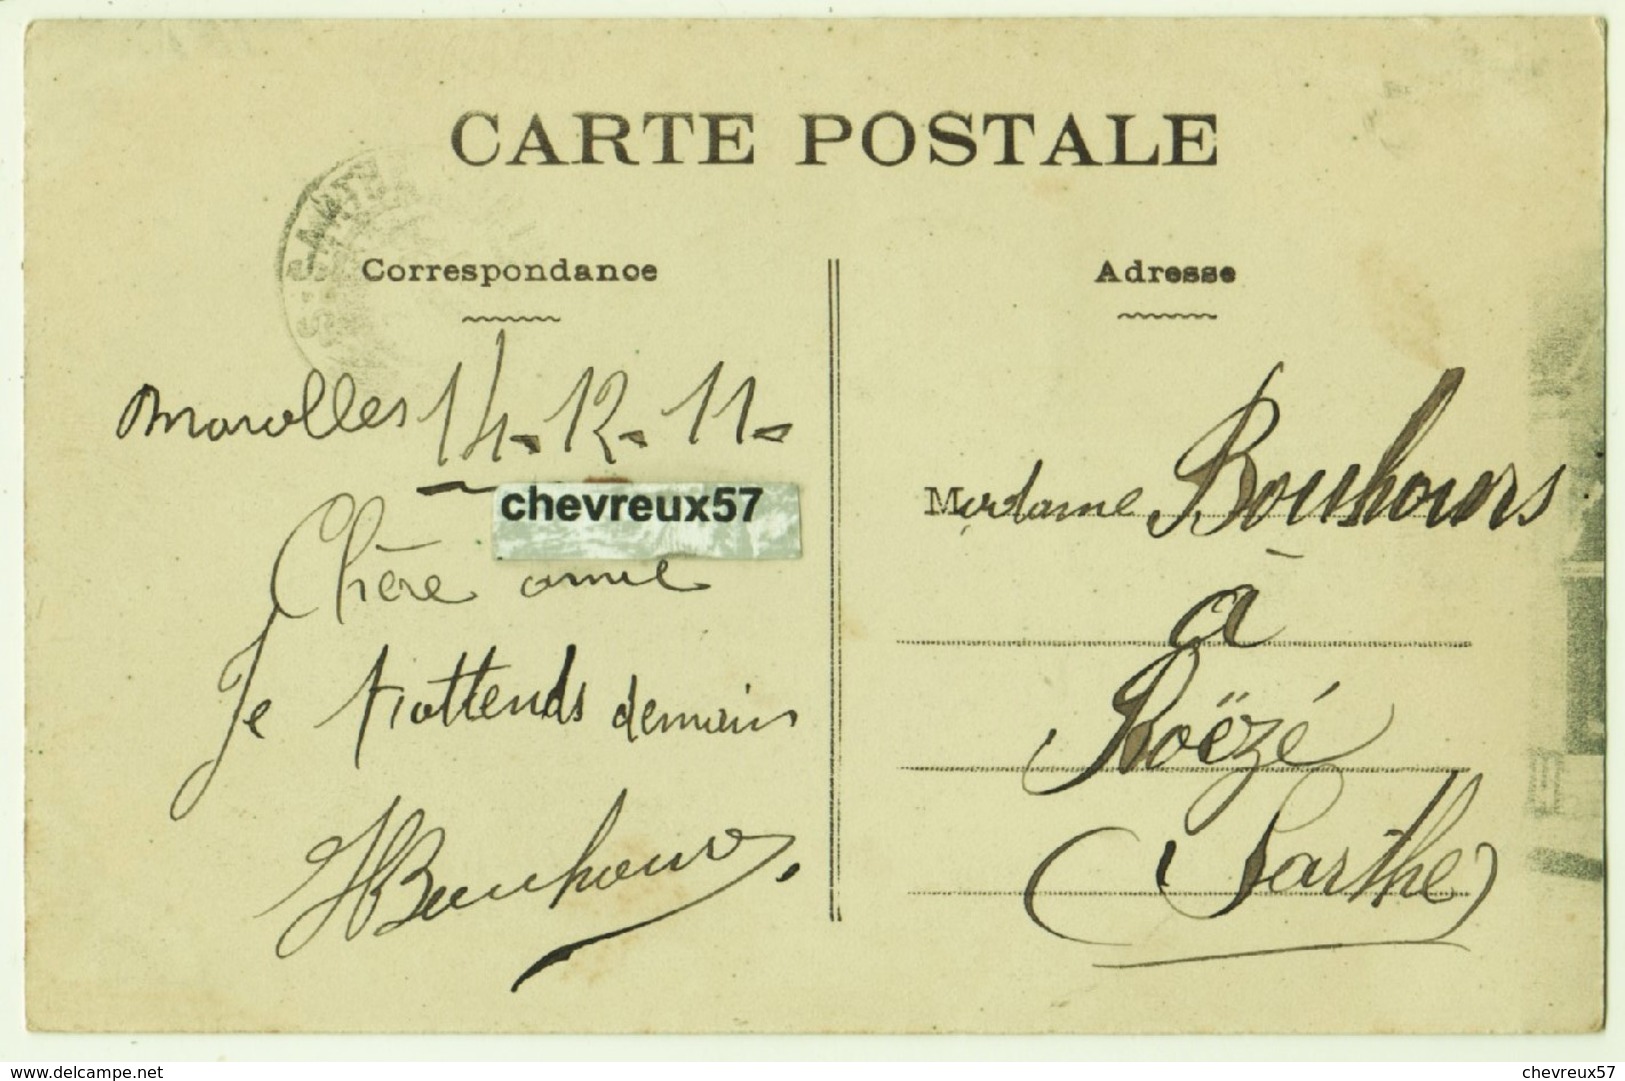 CARTE POSTALE
Correspondance
Marolles 14-12-11-
chevreux57
Chère amie
Je t'attends demain
HBouhours.
Adresse
Madame Bouhours
à
Roëzé
(Sarthe)
www.delcampe.net
chevreux57